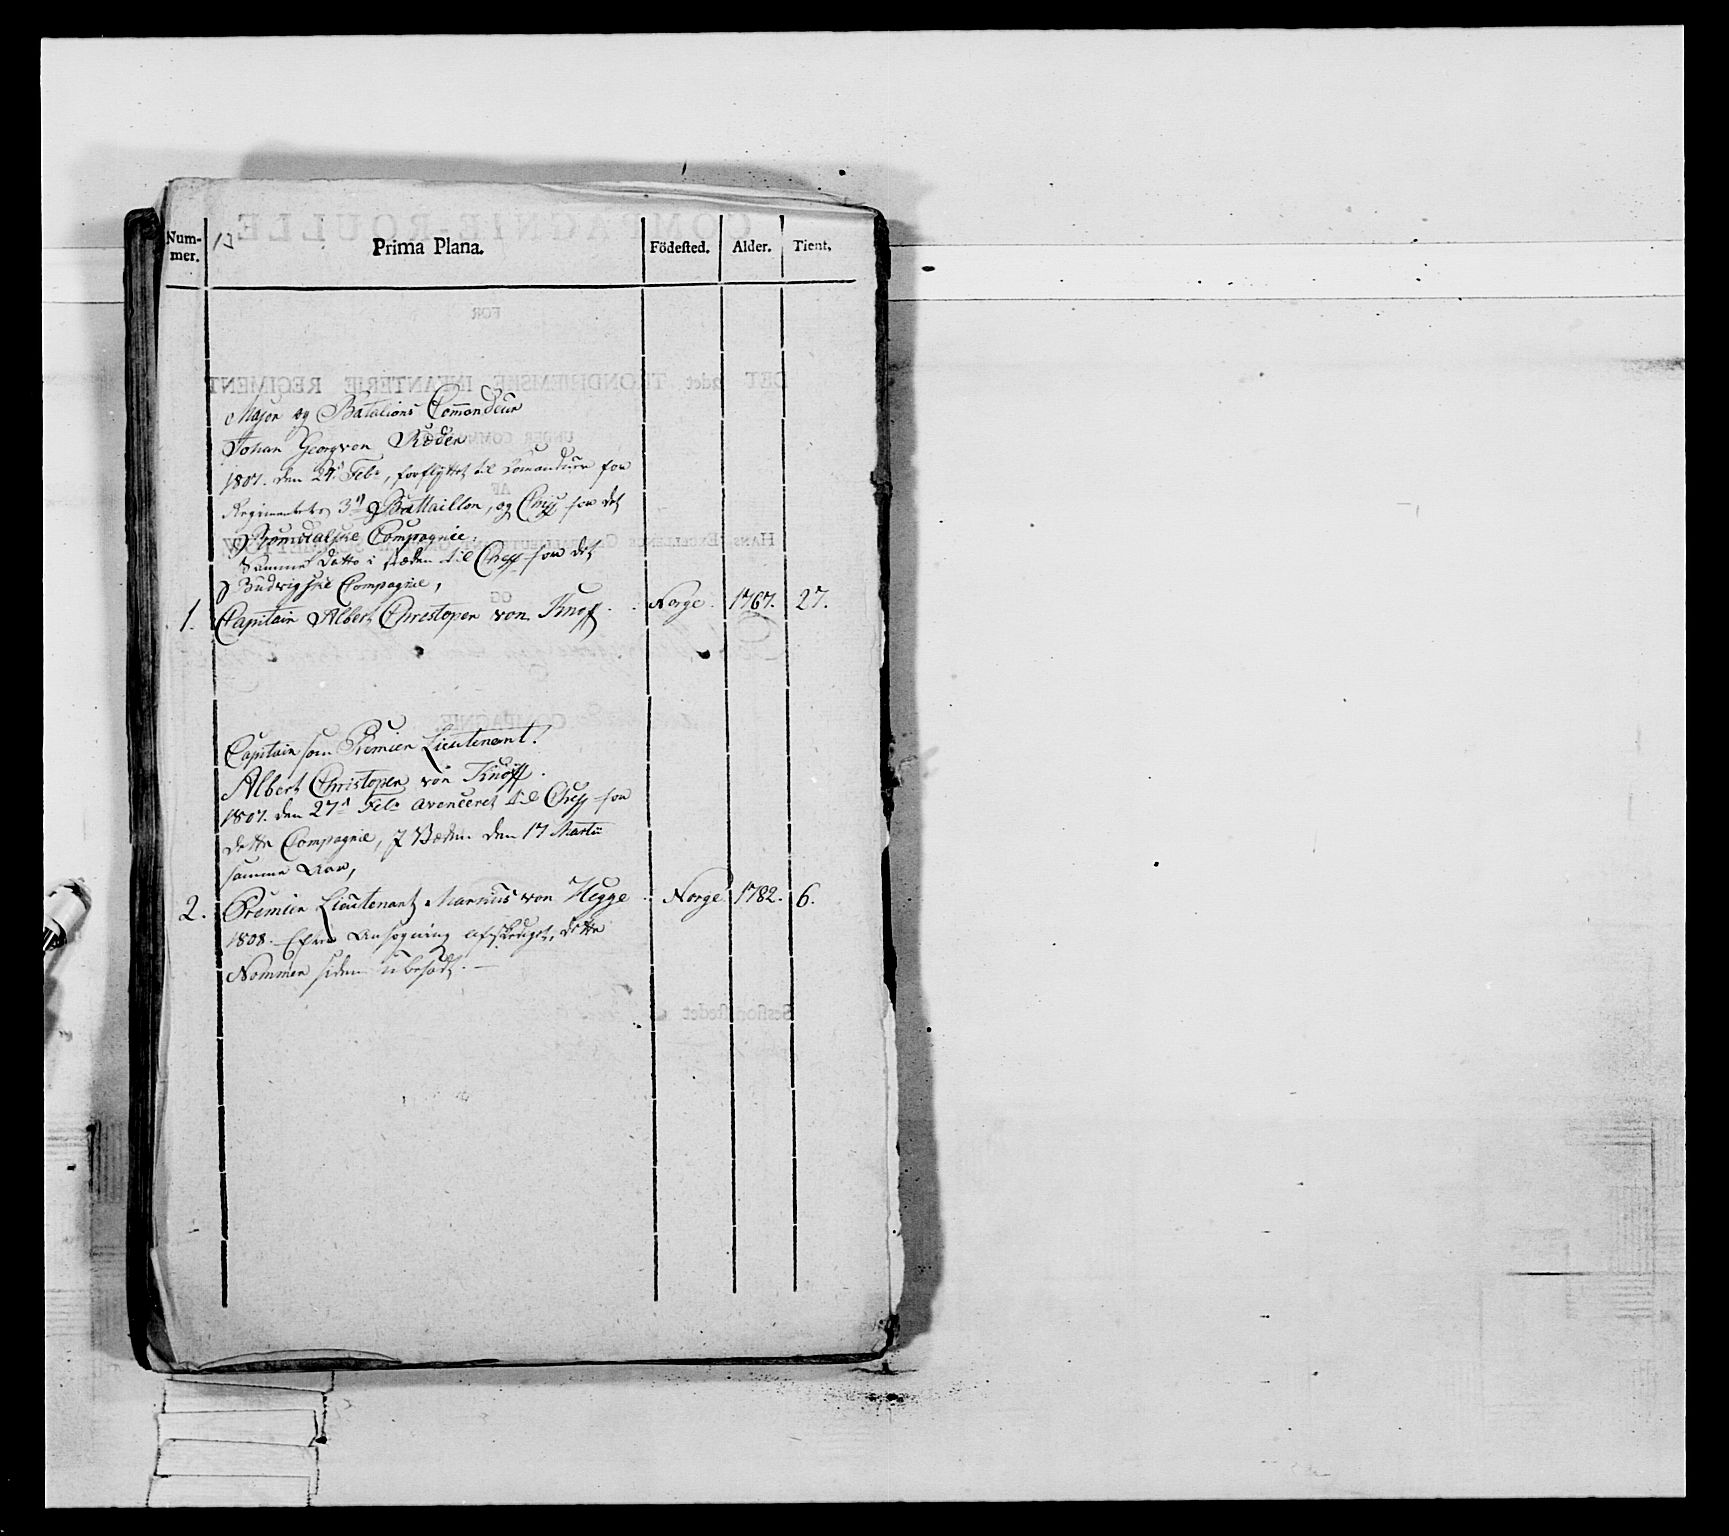 Num-
mer.
13
Prima Plana.
Födested.
Alder.
Tient.
Major og Batalions Comandeur
Johan Georg von Röder
1807. den 27d Febr, forflyttet til Comandeur for
Regimentets 3d Battaillon, og Chef for det
Romsdalske Compagnie.
Samme Datto i steden til Chef for det
Budvigske Compagnie,
1. Capitain Albert Christopher von Knoff. Norge. 1767. 27.
Capitain som Premier Lieutenant.
Albert Christopher von Knoff.
1807. den 27d Febr avenceret til Chef for
dette Compagnie, den 17 Martii
samme Aar,
2. Premier Lieutenant Marnus von Hegge Norge 1782. 6.
1808. Efter Ansøgning afskediget, dette
Nommer siden ubesadt.